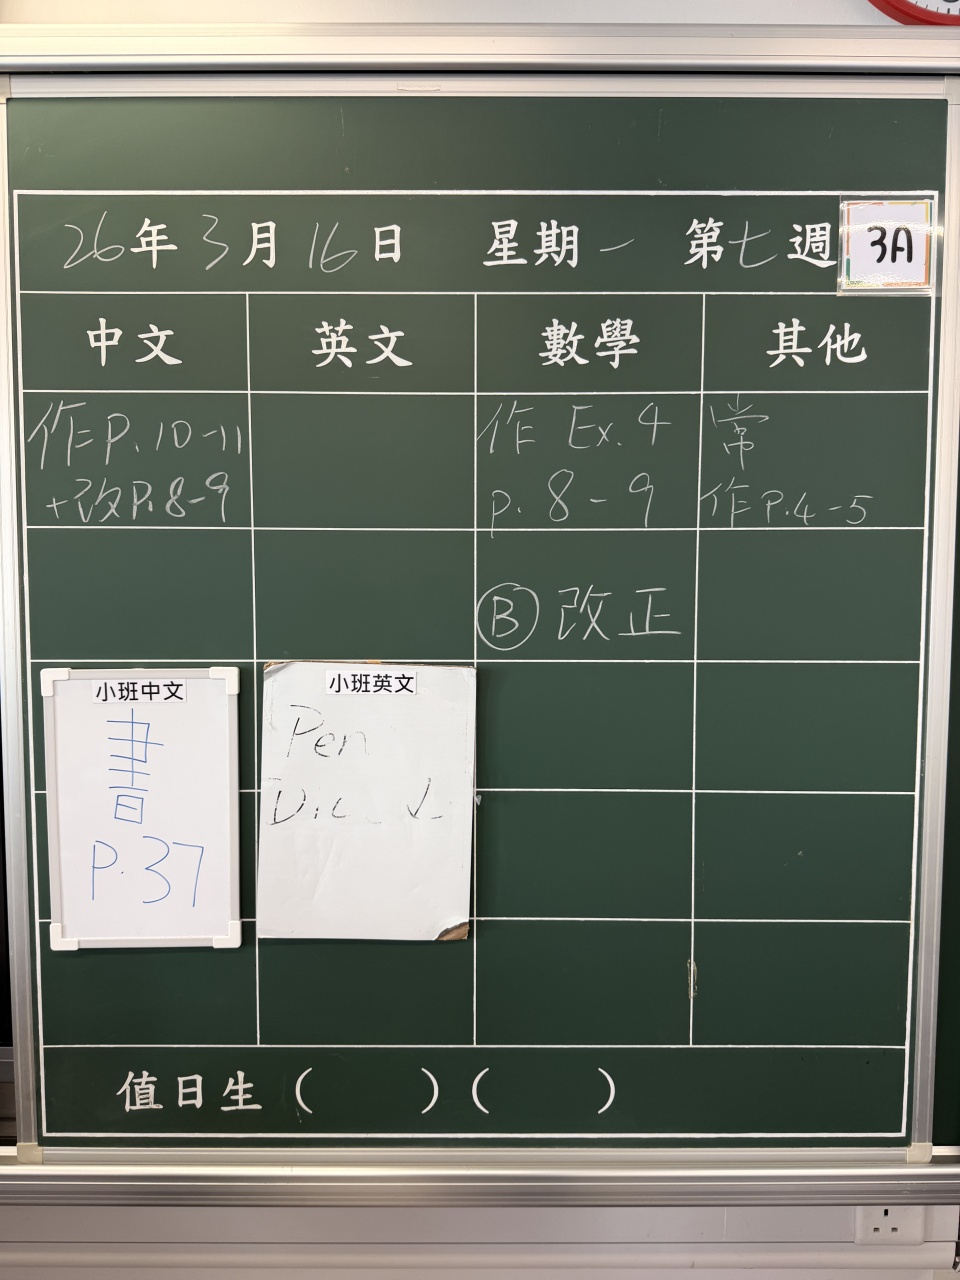 26年3月16日 星期一 第七週 3A
中文 英文 數學 其他
作P.10-11
+改P.8-9
作 Ex.4
p.8-9
常
作P.4-5
Ⓑ改正
小班中文
書
P.37
小班英文
Pen
Dic ✓
值日生( )( )